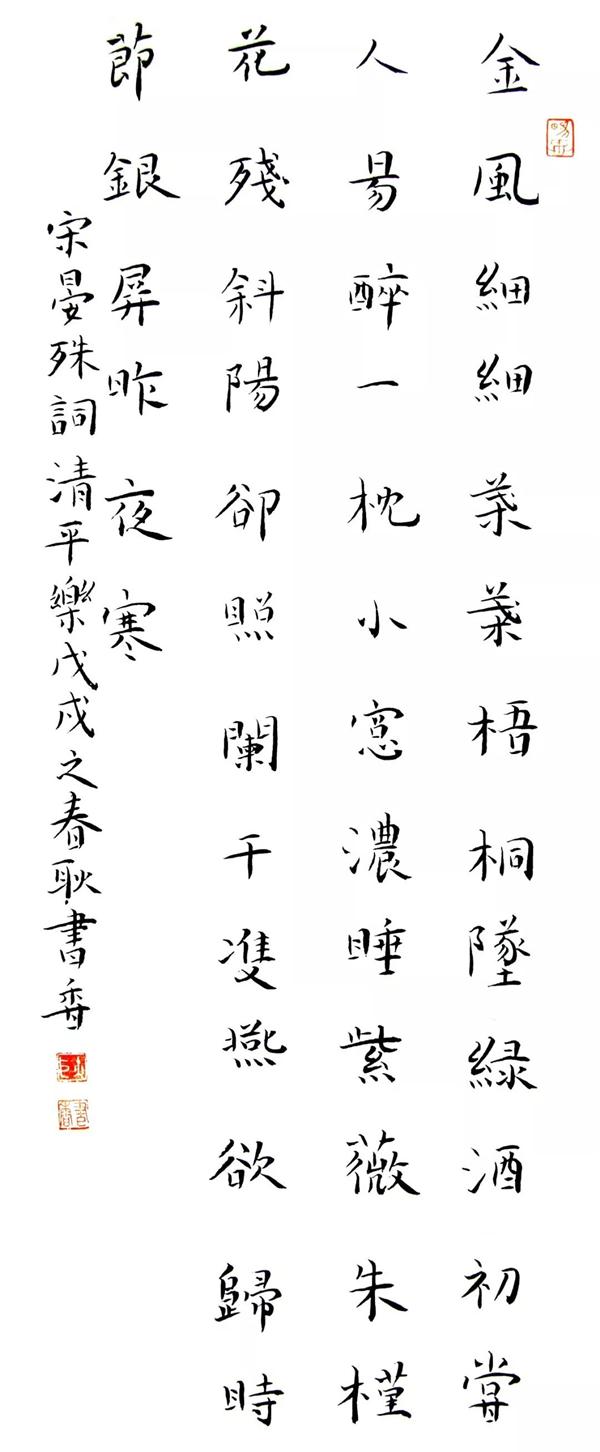 金風細細葉葉梧桐墜緑酒初嘗
人易醉一枕小窓濃睡紫薇朱槿
花殘斜陽卻照闌干雙燕欲歸時
節銀屏昨夜寒
宋晏殊詞清平樂戊戌之春耿書香